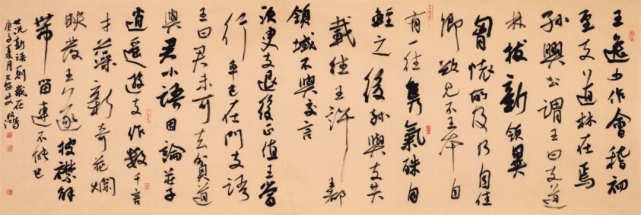 王逸少作會稽初
至支道林在焉
孫興公謂王曰支道
林拔新領異
胸懷所及乃自佳
卿欲見不王本自
有一往雋氣殊自
輕之後孫與支共
載往王許都
領域不與交言
須臾支退後正值王當
行車已在門支語
王曰君未可去貧道
與君小語因論莊子
逍遙遊支作數千言
才藻新奇花爛
映發王遂披襟解
帶留連不能已
新語
夏月